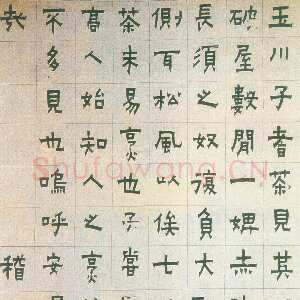 玉川子耆茶見其
破屋數閒一婢赤
長須之奴復負大
側耳松風以俟七
茶未易烹也予嘗
高人始知人之烹
不多見也嗚呼安
哉 稽
Shufawang.CN